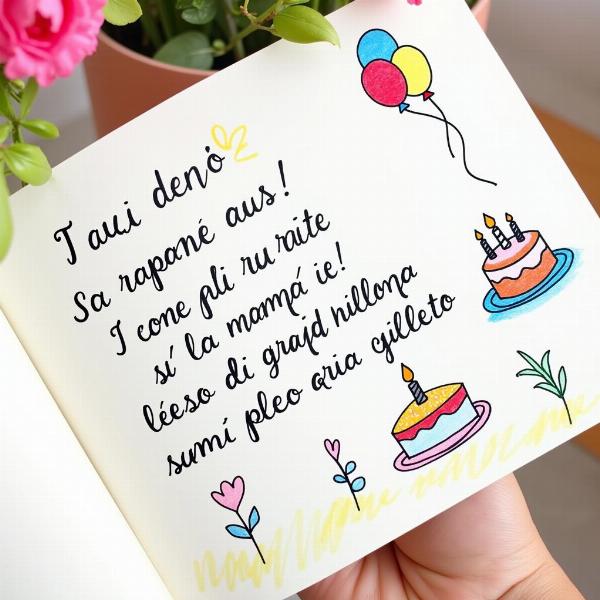 T aui denò
Sa rapané aus!
I cone pli ru raite
sí la mamá ie!
léeso di grajd hillona
sumí pleo aria gilleto